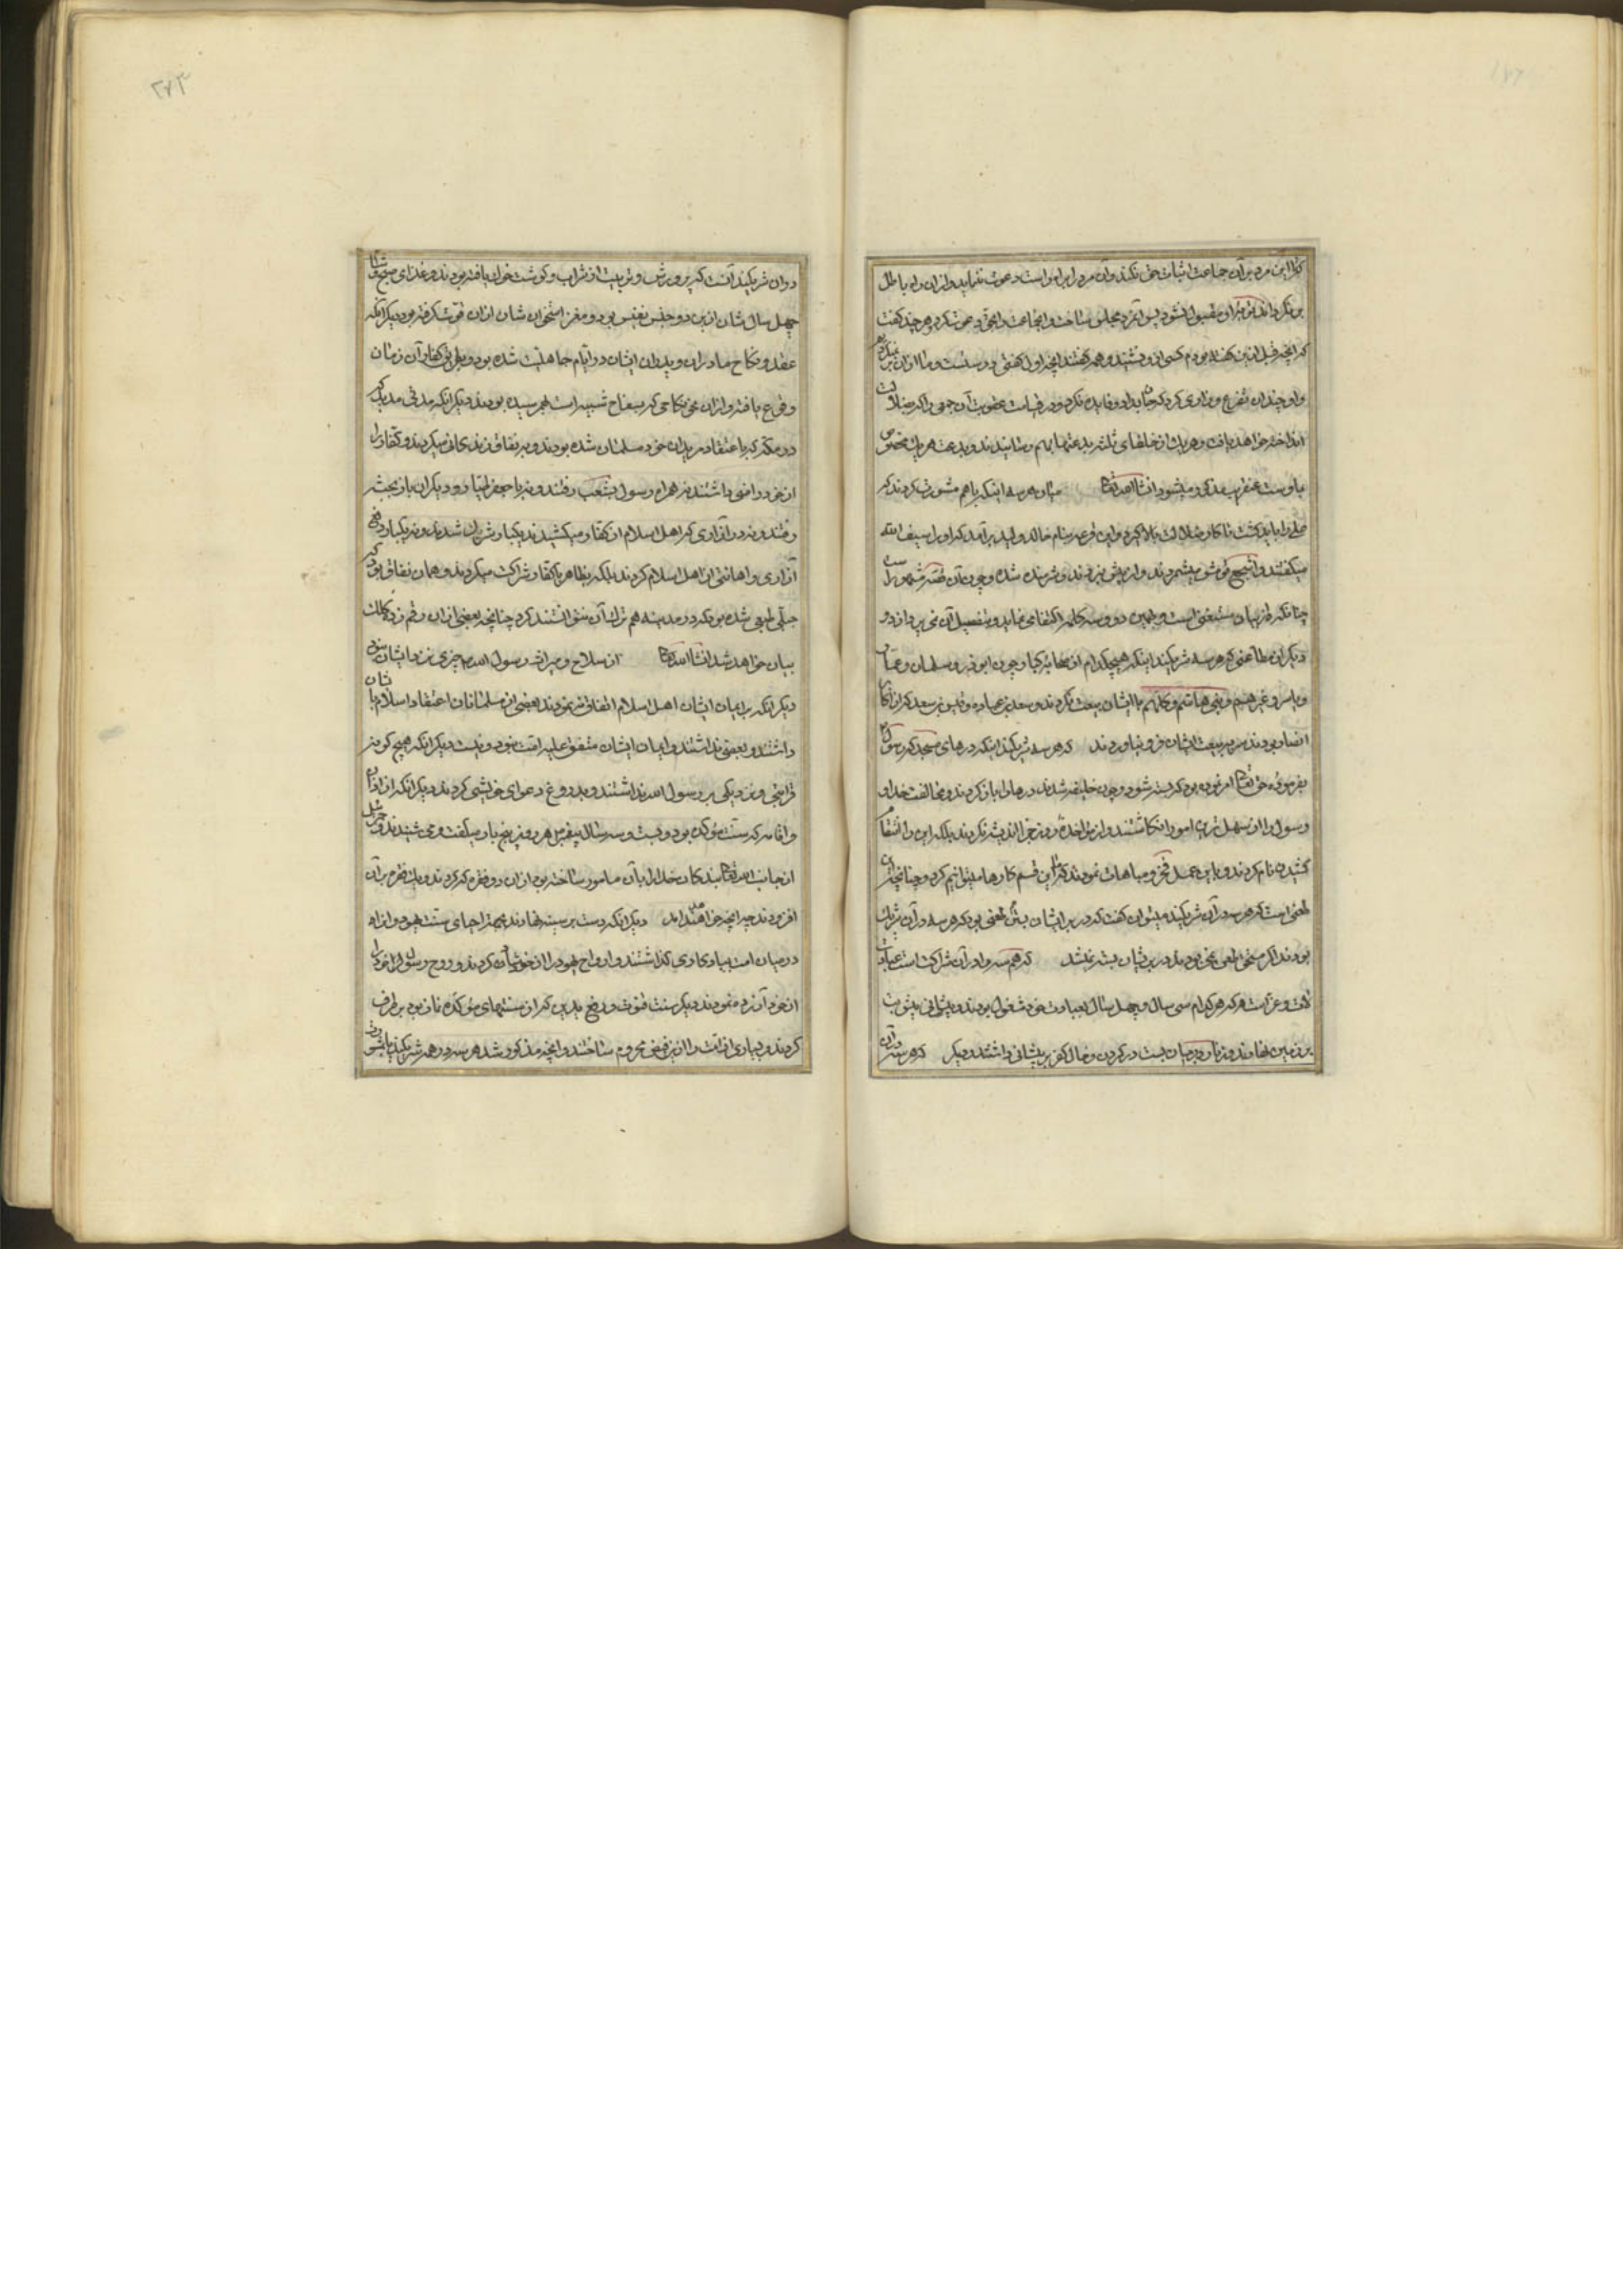 کرا این مرد بر آن جماعت اثبات حق نکند و آن مرد را براه راست دعوت ننماید و از آن راه باطل
بر نکرداند توبه او مقبول نشود پس آنمرد مجلس ساخت و انجماعت را بحق دعوت کرد هر چند کفت
که آنچه قبل ازین کفته بودم کسی ازو نشنید و همه کفتند آنچه اول کفتی درستست و ما از آن بر نمیکردیم
و او چندان تضرع و زاری کرد که جان بداد و فایده نکرد و در قیامت عقوبت آن جمعی را که بضلالت
انداخته خواهد یافت و هر یک از خلفای ثلثه بدعتها بهم رسانیدند و بدعت هر یک مخصوص
باوست عنقریب مذکور میشود انشاالله تعالی میان هر سه اینکه باهم مشورت کردند که
علی را باید کشت تا کار ضلالت بالا کیرد و این قرعه بنام خالد ولید برآمد که او را سیف الله
میکفتند و اشجع قریش میشمردند و از پیش نبردند و شرمنده شده و چون آن قصه مشهور است
چنانکه از بیان مستغنی است و بهمین دو و سه کلمه اکتفا می نماید و بتفصیل آن نمی پردازد و
دیکر از مطاعنی که هر سه شریکند اینکه هیچکدام از صحابه کبار چون ابوذر و سلمان و عمار
و یاسر و غیرهم و بنی هاشم کلهم با ایشان بیعت نکردند و سعد بن عباده و قیس بن سعد که از اکابر
انصار بودند سر در بیعت ایشان فرو نیاوردند که هر سه شریکند اینکه درهای مسجد که رسول
بفرموده حق تعالی امر نموده بود که بسته شود و چون خلیفه شدند درها را باز کردند و مخالفت خدا و
رسول را از سهل ترین امور انکاشتند و از مؤاخذه روز جزا اندیشه نکردند بلکه این را انتقام
کشیدن نام کردند و باین عمل فخر و مباهات نمودند که ما این قسم کارها میتوانیم کرد و چنانچه این
طعنی است که هر سه در آن شریکند میتوان کفت که در برابر ایشان بستن طعنی بود که هر سه در آن شریک
بودند اگر مستحق طعن نمی بودند در بر ایشان بسته نمیشد که هم سه را در آن شراکت است عبادت
لات و عزاست که هر کدام سی سال و چهل سال بعبادت خود مشغول بودند و پیشانی پیش بت
بر زمین نهادند و زنار در میان بست در کردن و خال کفر بر پیشانی داشتند دیکر که هر سه در آن
در آن شریکند آنست که پرورش و تربیت از شراب و کوشت خوک یافته بودند و غذای صبح و شام
چهل سال شان ازین دو جنس نفیس بود و مغز استخوان شان از آن قوت کرفته بود دیکر آنکه
عقد و نکاح مادران و پدران ایشان در ایام جاهلیت شده بود و بطریق کفار آن زمان
وقوع یافته و از آن نحو نکاحی که بسفاح شبیه است بهم رسیده بودند دیکر آنکه مدتی مدید که
در مکه که باعتقاد مریدان خود مسلمان شده بودند و بر نفاق زندکانی میکردند و کفار را
از خود راضی داشتند نه همراه رسول بشعب رفتند و نه با جعفر طیار و دیکران بار بحبشه
رفتند و نه در آزاری که اهل اسلام از کفار میکشیدند یکبار شریک شدند و نه یکبار دفع
آزاری و اهانتی از اهل اسلام کردند بلکه بظاهر با کفار شراکت میکردند و همان نفاق بود که
جبلی طبع شده بود که در مدینه هم ترک آن نتوانستند کرد چنانچه بعضی از آن رقم زده کلک
بیان خواهد شد انشاالله تعالی از سلاح و میراث رسول الله چیزی نزد ایشان نبود
دیکر آنکه بر ایمان ایشان اهل اسلام اتفاق ننمودند بعضی از مسلمانان اعتقاد اسلام بایشان
داشتند و بعضی نداشتند و ایمان ایشان متفق علیه امت نبود و نیست دیکر آنکه هیچ کونه
قرابتی و نزدیکی بر رسول الله نداشتند و بدروغ دعوای خویشی کردند دیکر آنکه از اذان
و اقامه که سنت مؤکده بود و بیست و سه سال پیغمبر هر روز پنج بار میکفت و می شنیدند و جبرئیل
از جانب الله تعالی بندکان خدا را بآن مامور ساخته بود از آن دو فقره کم کردند و یک فقره بر آن
افزودند چنانچه خواهد آمد دیکر آنکه دست بر سینه نهادند بجهت احیای سنت یهود و او را
در میان امت بیادکاری کذاشتند و ارواح یهود را از خود شادان کردند و روح رسول خدا را
از خود آزرده نمودند دیکر سنت قنوت و رفع یدین که از سنتهای مؤکده نماز بود بر طرف
کردند و بسیاری از امت را ازین فیض محروم ساختند و آنچه مذکور شد هر سه در همه شریکند